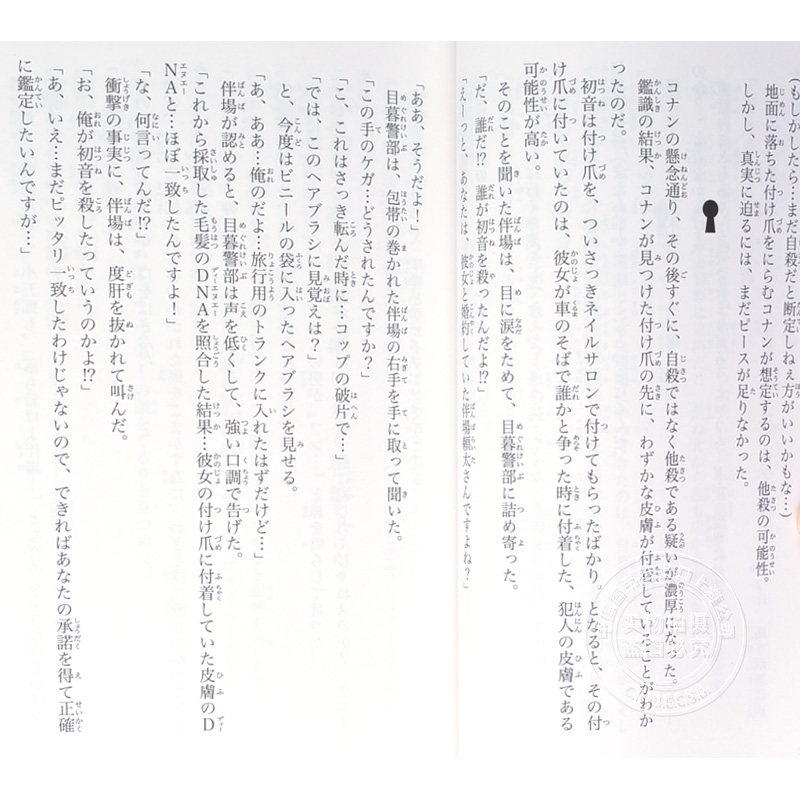 (もしかしたら…まだ自殺だと断定しねぇ方がいいかもな…)
地面に落ちた付け爪をにらむコナンが想定するのは、他殺の可能性。
しかし、真実に迫るには、まだピースが足りなかった。
コナンの懸念通り、その後すぐに、自殺ではなく他殺である疑いが濃厚になった。
鑑識の結果、コナンが見つけた付け爪の先に、わずかな皮膚が付着していることがわか
ったのだ。
初音は付け爪を、ついさっきネイルサロンで付けてもらったばかり。となると、その付
け爪に付いていたのは、彼女が車のそばで誰かと争った時に付着した、犯人の皮膚である
可能性が高い。
そのことを聞いた伴場は、目に涙をためて、目暮警部に詰め寄った。
「だ、誰だ!? 誰が初音を殺ったんだよ!?」
「えーっと、あなたは、彼女と婚約していた伴場頼太さんですよね?」
「ああ、そうだよ!」
目暮警部は、包帯の巻かれた伴場の右手を手に取って聞いた。
「この手のケガ…どうされたんですか?」
「こ、これはさっき転んだ時に…コップの破片で…」
「では、このヘアブラシに見覚えは?」
と、今度はビニールの袋に入ったヘアブラシを見せる。
「あ、ああ…俺のだよ…旅行用のトランクに入れたはずだけど…」
伴場が認めると、目暮警部は声を低くして、強い口調で告げた。
「これから採取した毛髪のDNAを照合した結果…彼女の付け爪に付着していた皮膚のD
NAと…ほぼ一致したんですよ!」
「な、何言ってんだ!?」
衝撃の事実に、伴場は、度肝を抜かれて叫んだ。
「お、俺が初音を殺したっていうのかよ!?」
「あ、いえ…まだピッタリ一致したわけじゃないので、できればあなたの承諾を得て正確
に鑑定したいんですが…」